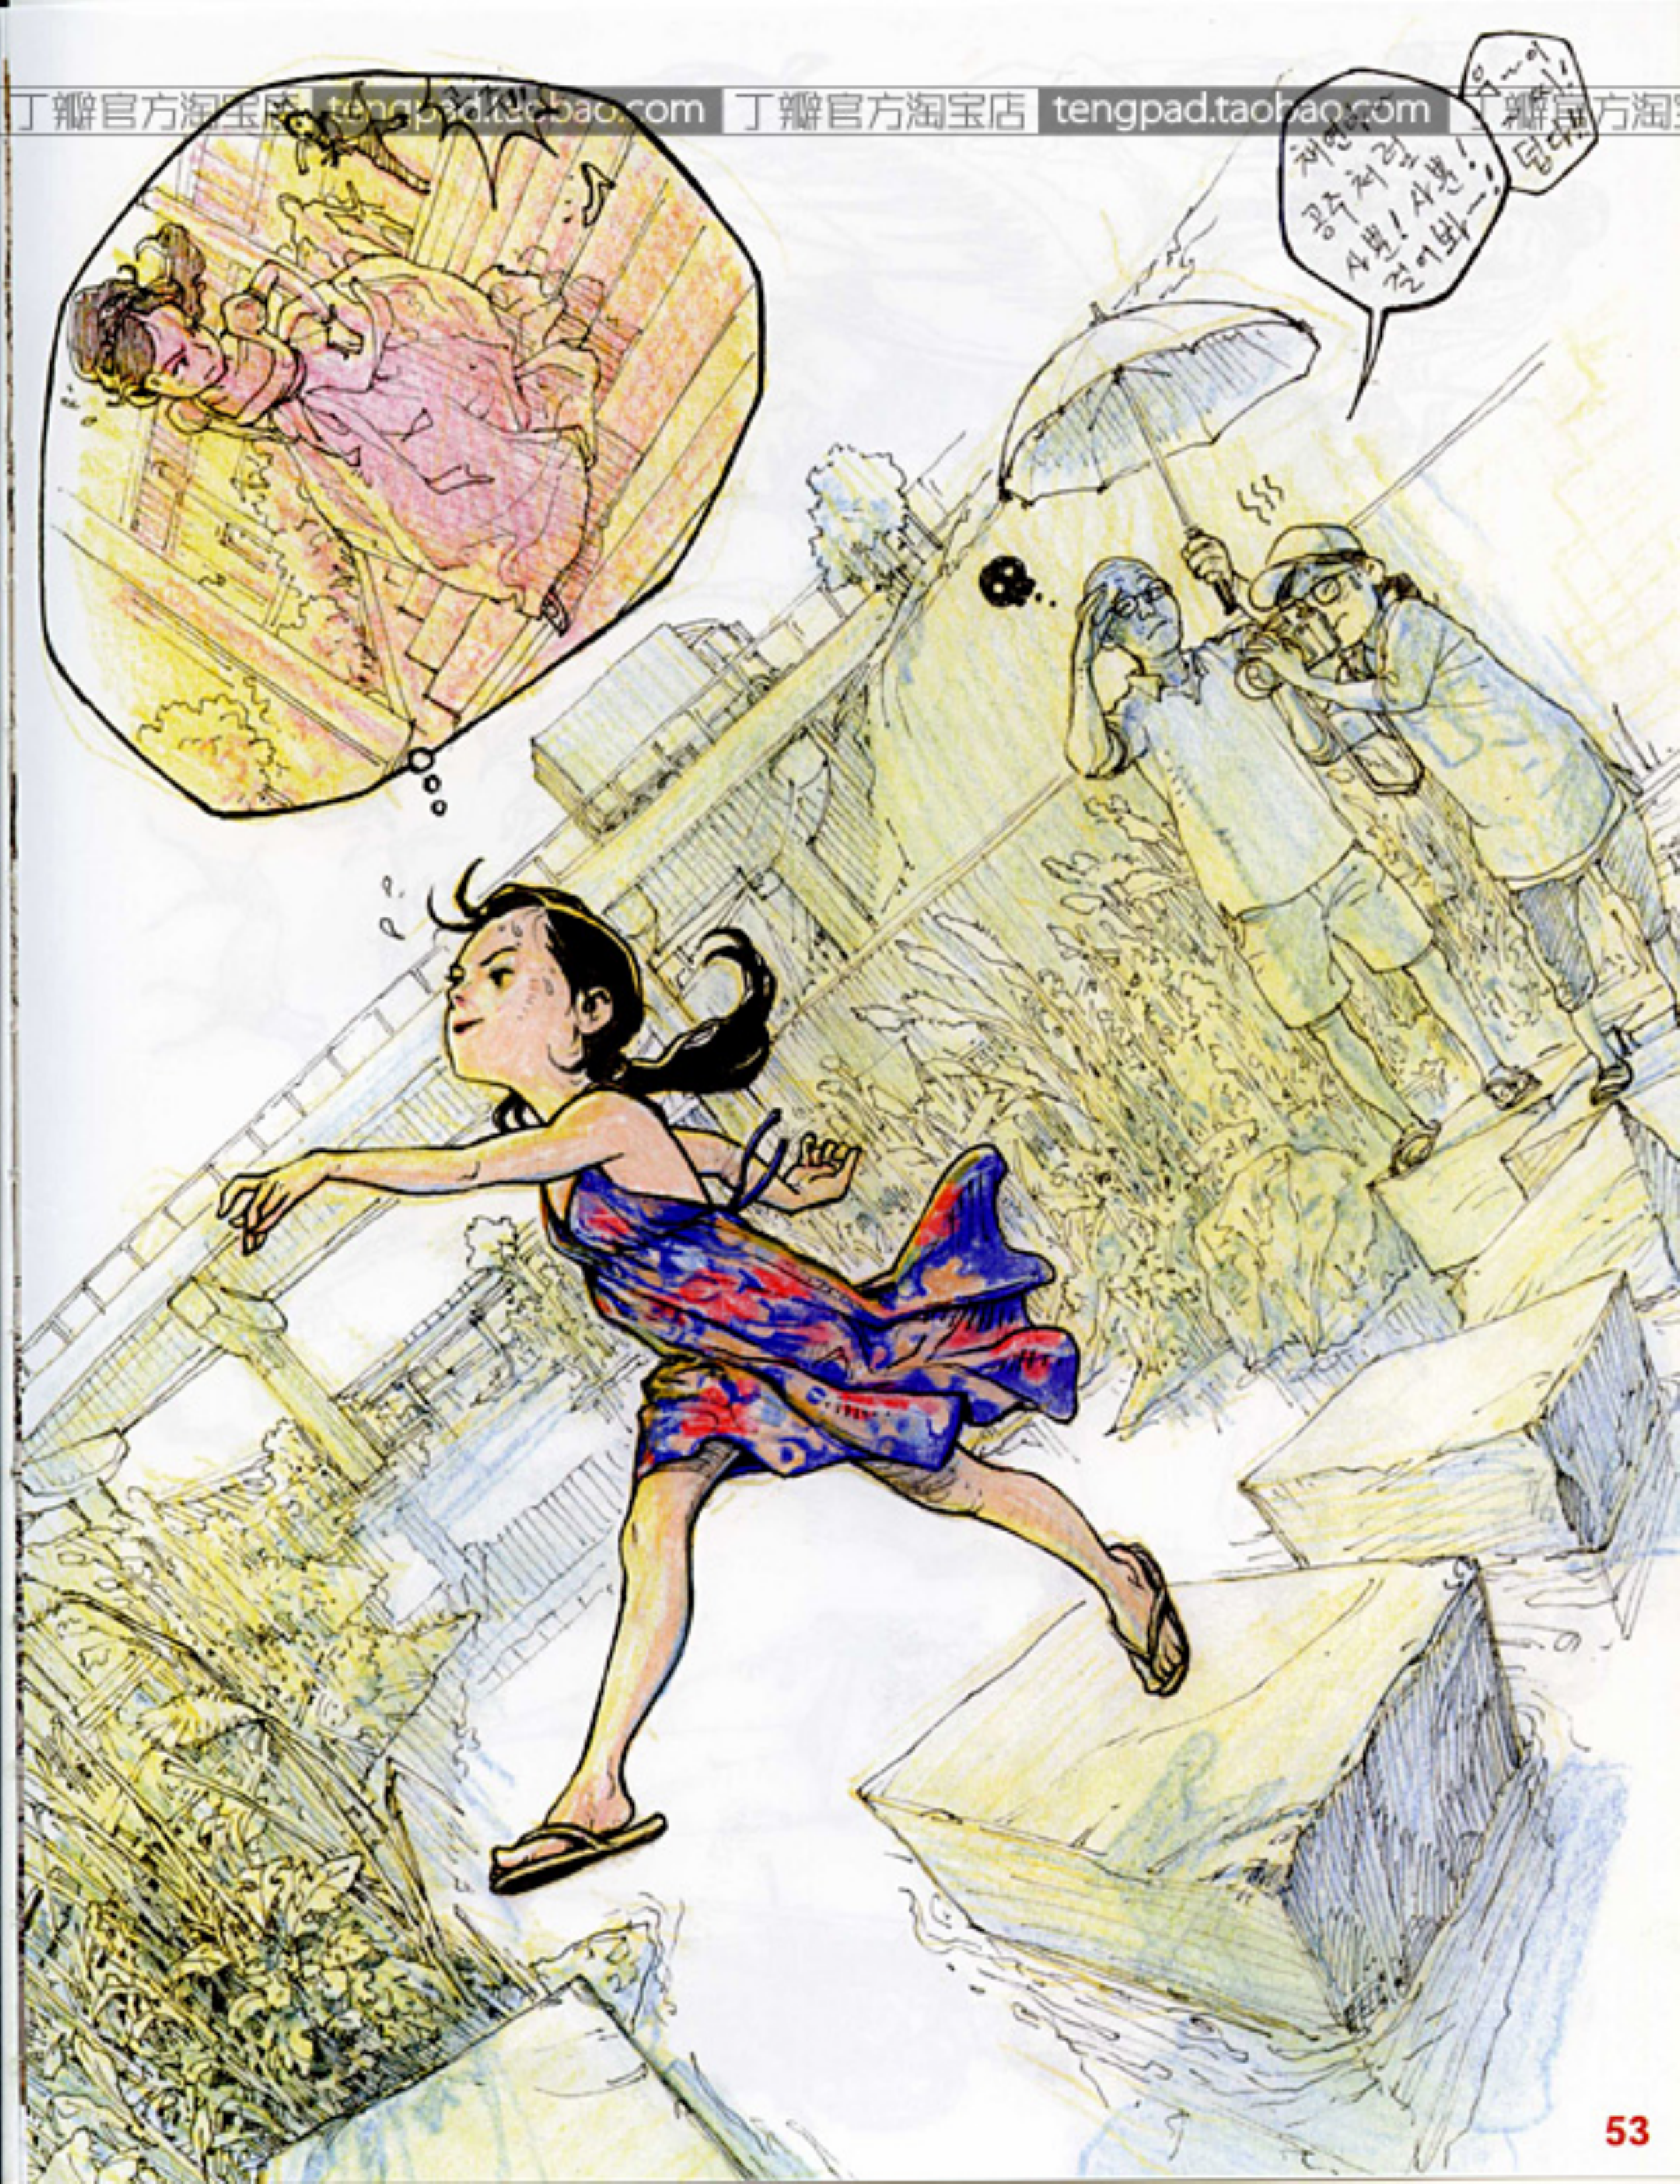 丁瓣官方淘宝店 tengpad.taobao.com 丁瓣官方淘宝店 tengpad.taobao.com 丁瓣官方淘宝
채연아
공주처럼
사뿐! 사뿐!
걸어봐~!
덥다
53